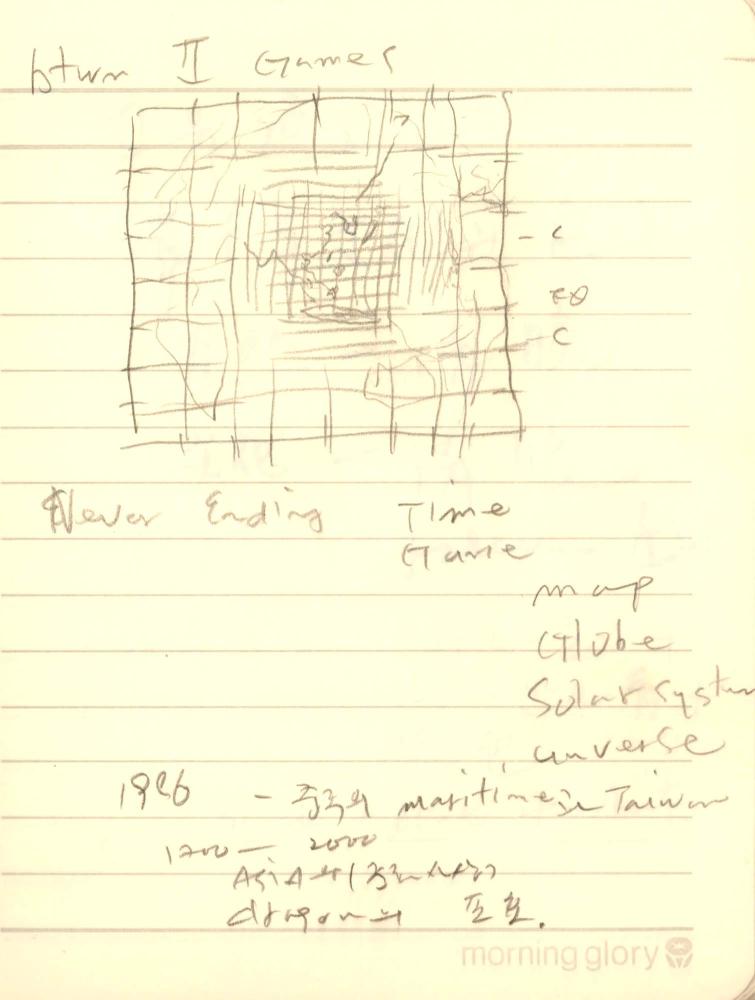 btwn II Games
- C
C
Never Ending Time
Game
map
Globe
Solar System
universe
1986 - 중국의 maritime는 Taiwan
1700 — 2000
dragon의 포효.
morning glory